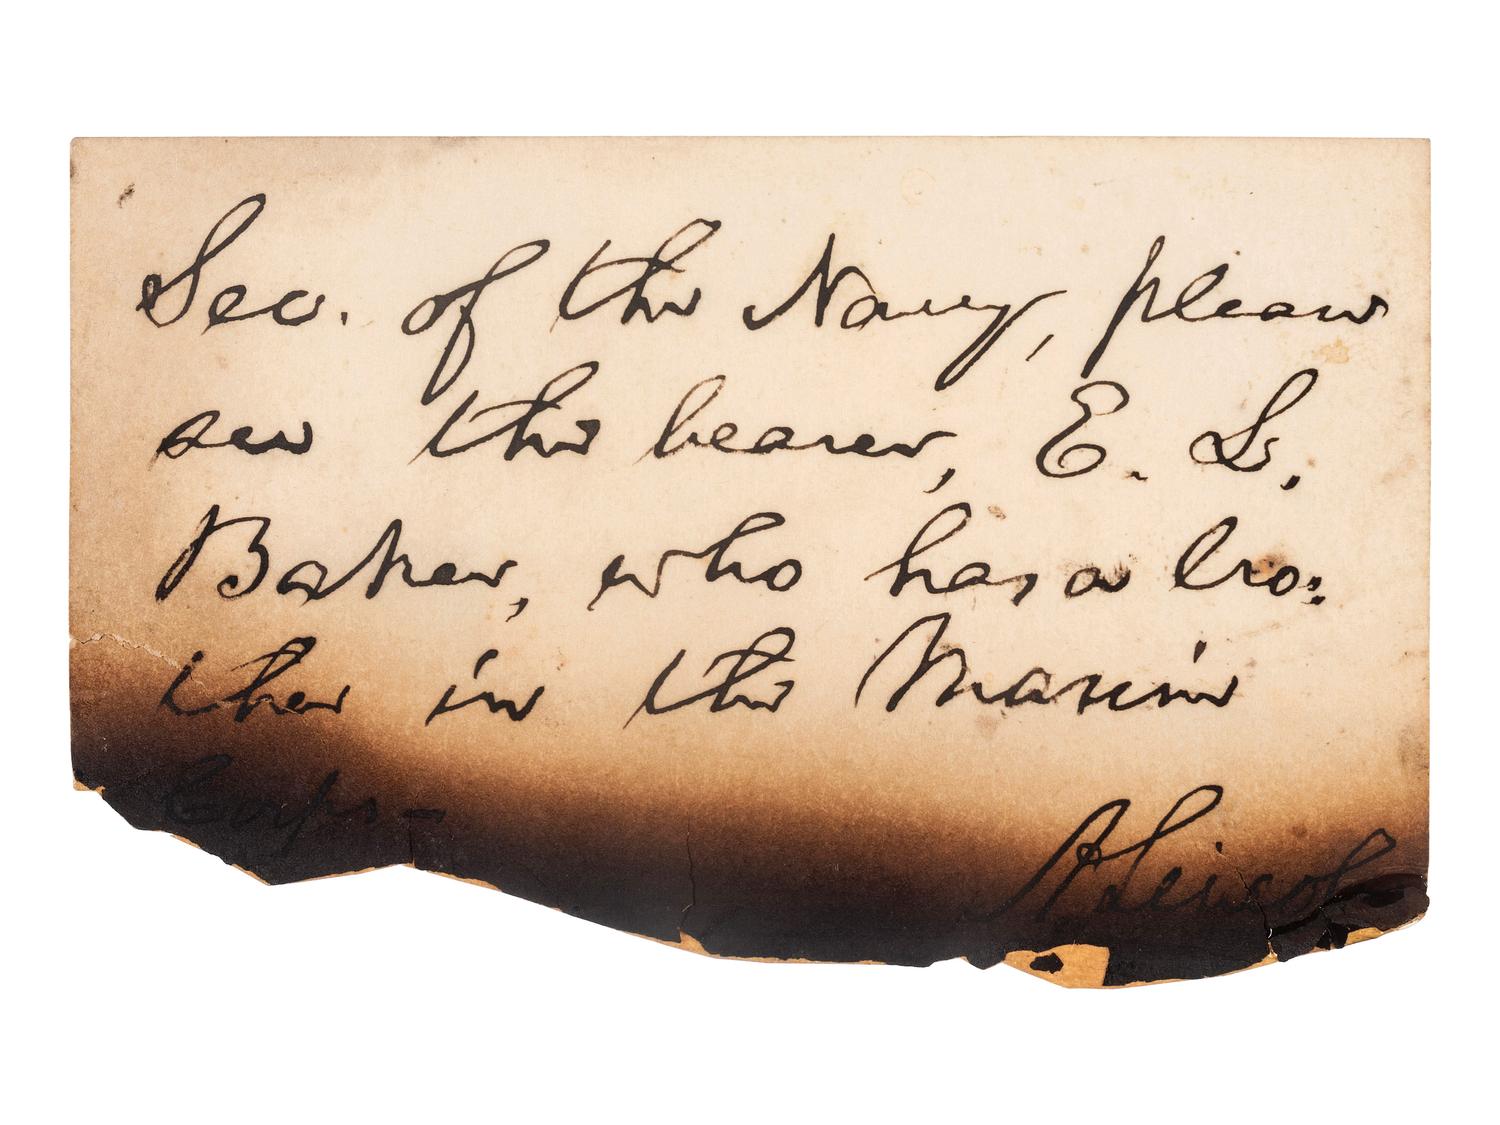 Sec. of the Navy, please
see the bearer, E. L.
Baker, who has a bro:
ther in the Marine
Corps—
A. Lincoln